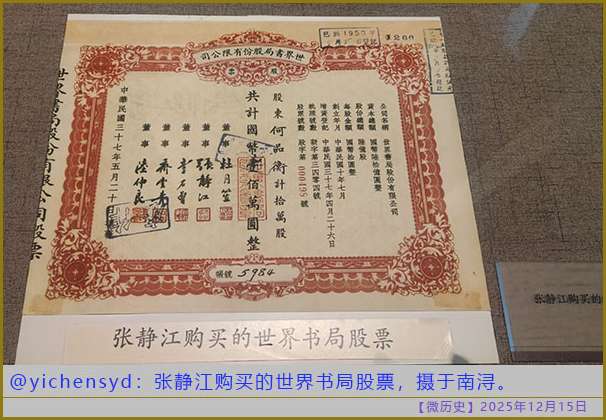 世界書局股份有限公司
股票
已於1950年
月 日登記
1260
公司名稱 世界書局股份有限公司
資本總額 國幣陸拾億圓整
股份總額 陸億股
每股金額 國幣拾圓整
創立年月 中華民國十年七月
增資登記 中華民國三十七年四月二十六日
執照號數 新字第三四〇四號
股票號數 股字第000495號
股東何品衡計拾萬股
共計國幣壹佰萬圓整
董事 杜月笙
董事 張靜江
董事 李石曾
董事 齊雲青
董事 陸仲良
中華民國三十七年五月二十日
世界書局股份有限公司股票
帳號 5984
张静江购买的世界书局股票
张静江购买的
@yichensyd：张静江购买的世界书局股票，摄于南浔。
【微历史】2025年12月15日